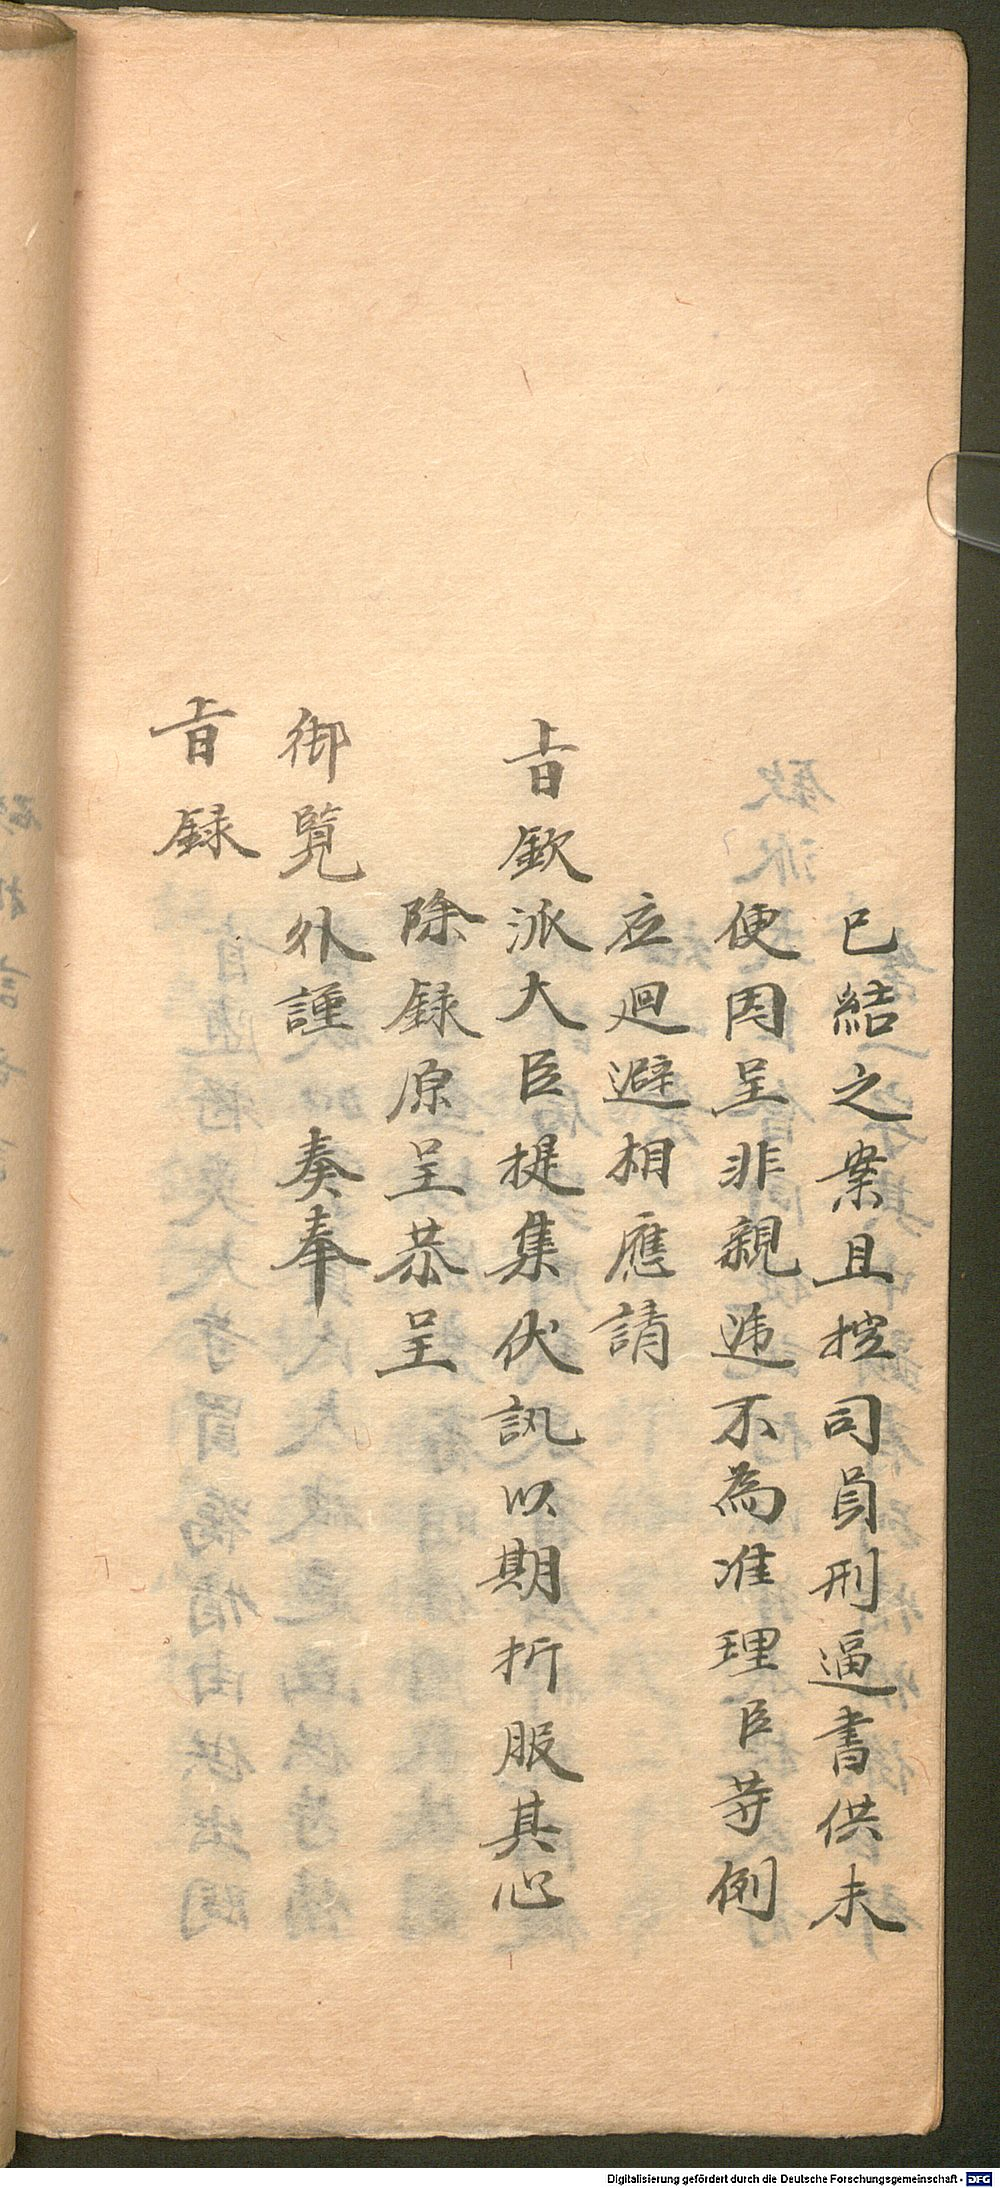 已結之案且控司員刑逼書供未
便因呈非親遞不為准理臣等例
應迴避相應請
旨欽派大臣提集伏訊以期折服其心
除録原呈恭呈
御覽外謹 奏奉
旨録
Digitalisierung gefördert durch die Deutsche Forschungsgemeinschaft - DFG